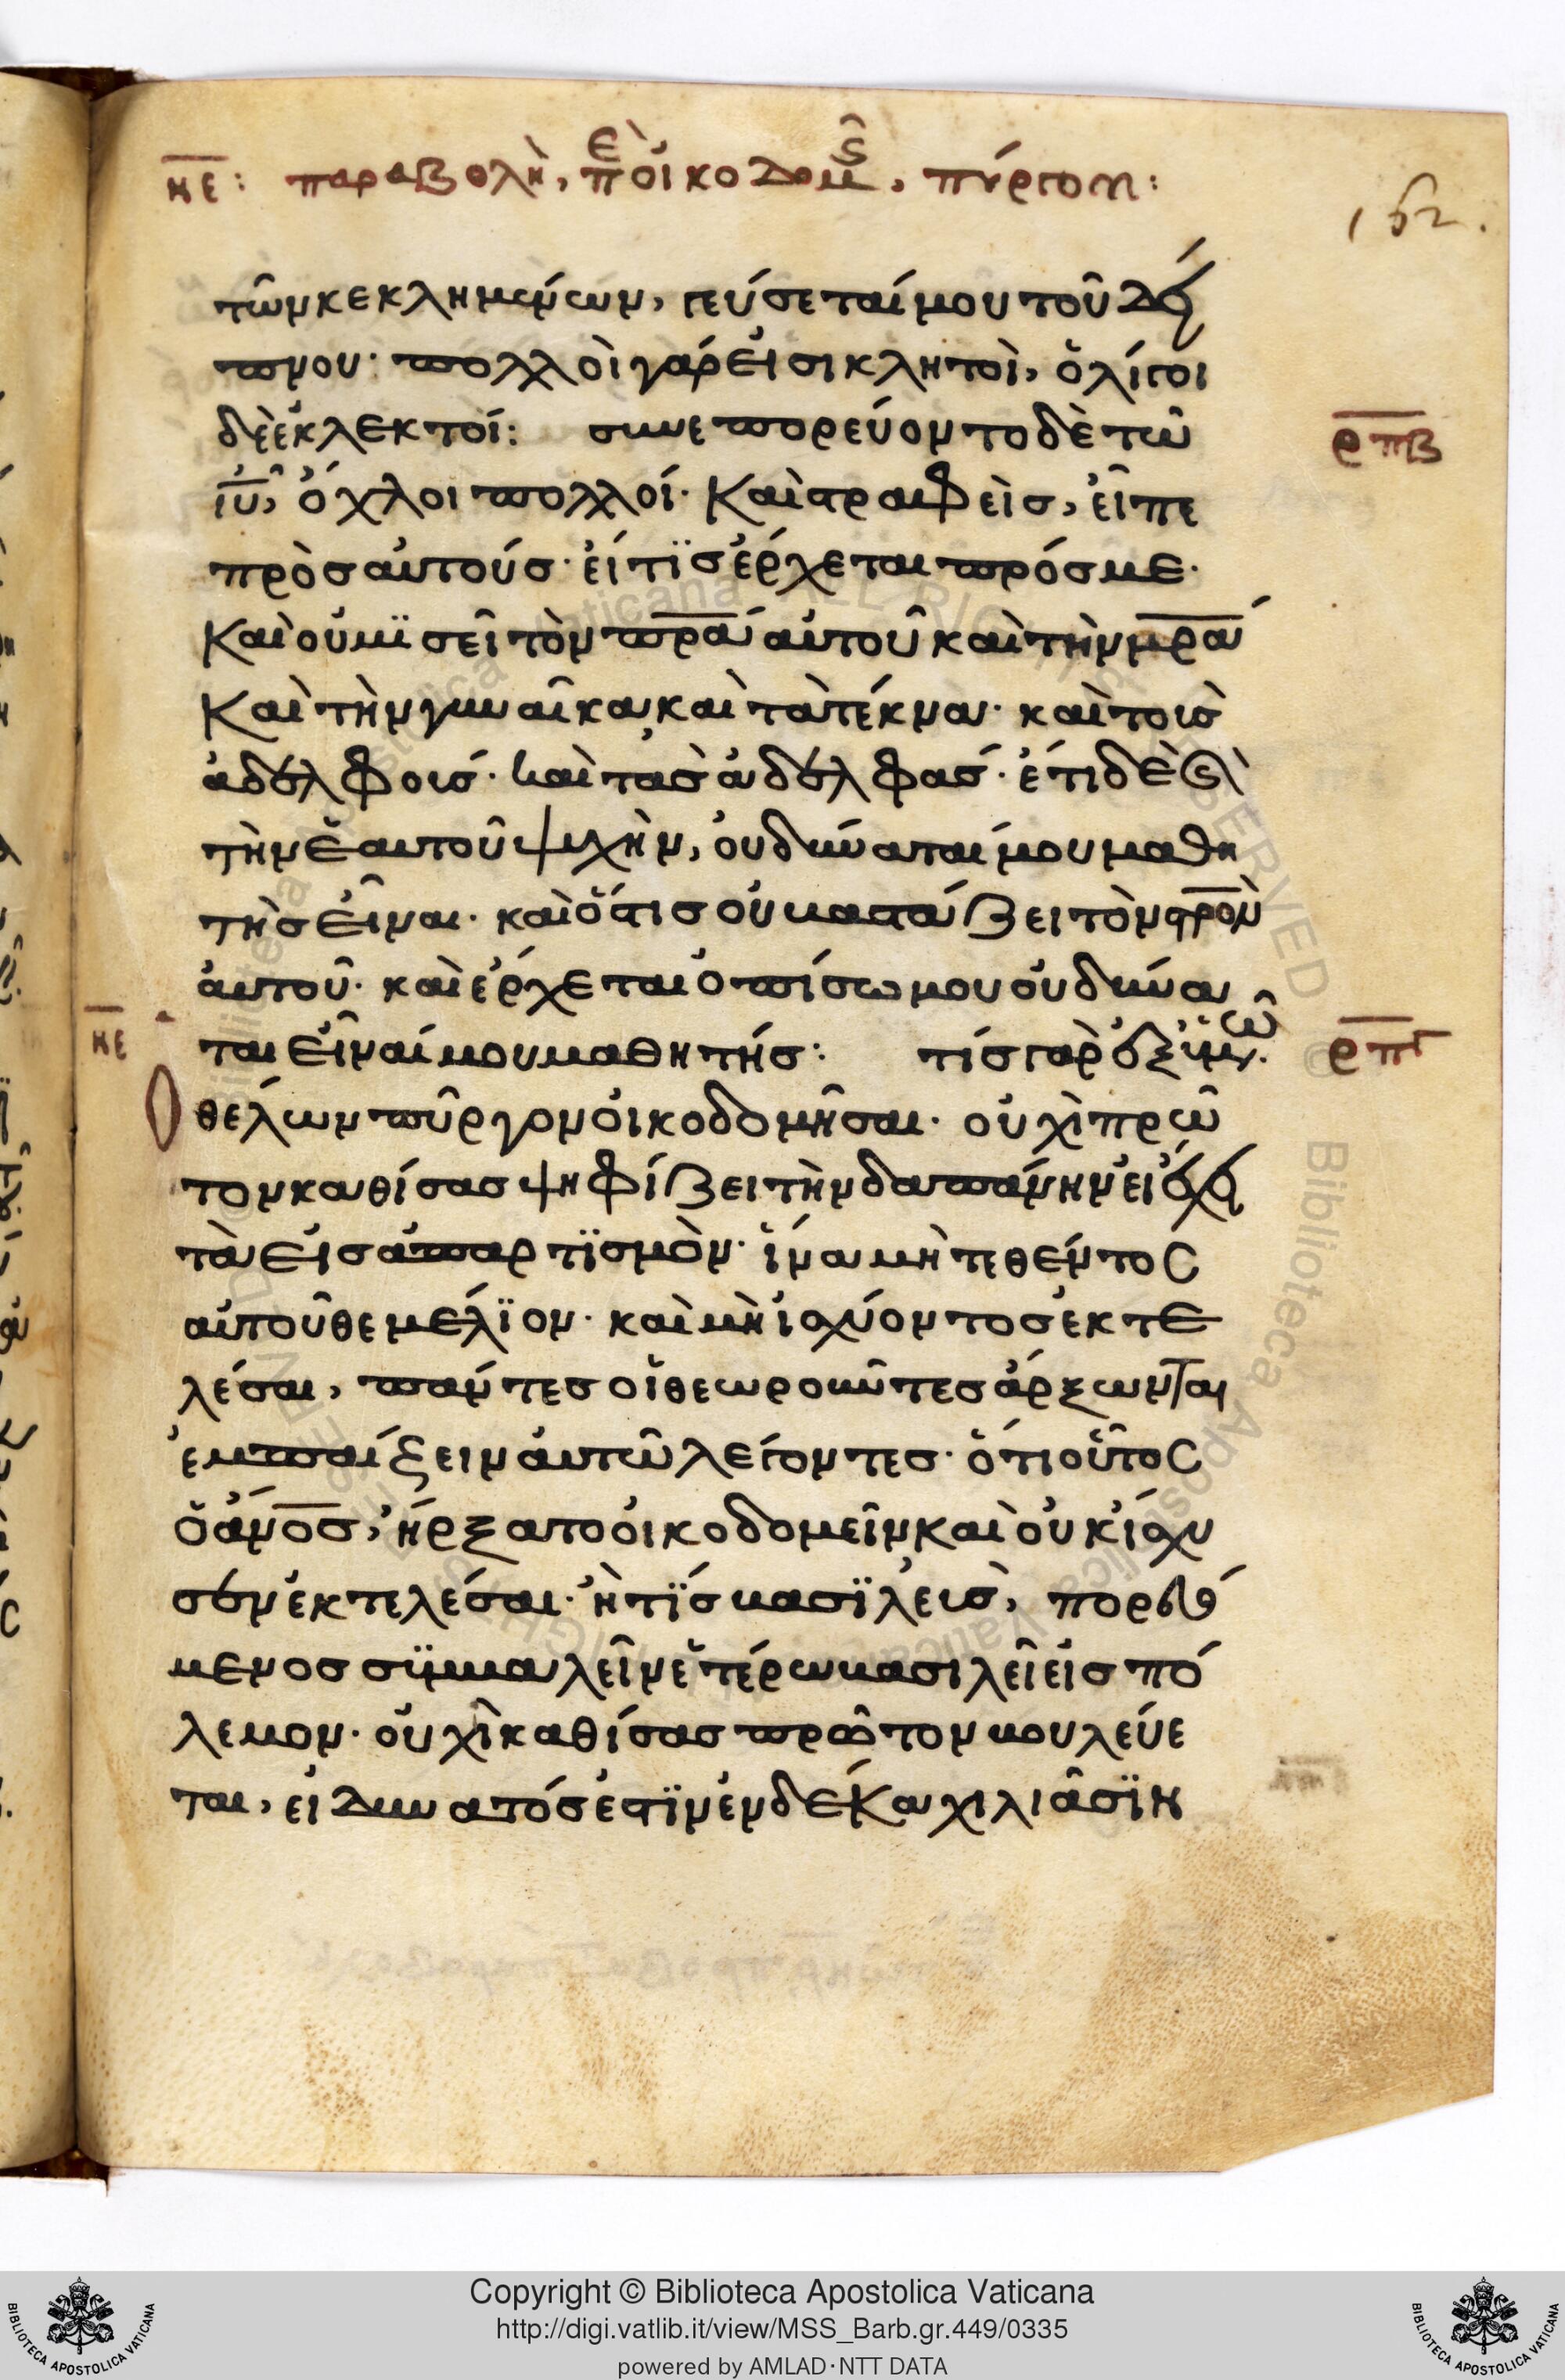 κε: παραβολὴ, ἐπὶ οἰκοδομῆς, πύργον:
162.
τῶν κεκλημένων, γεύσεταί μου τοῦ δεί
πνου· πολλοὶ γάρ εἰσι κλητοὶ, ὀλίγοι
δὲ ἐκλεκτοί: συνεπορεύοντο δὲ τῶ
ρπβ
ιυ, ὄχλοι πολλοί. Καὶ στραφεὶς, εἶπε
πρὸς αὐτούς· εἴ τϊς ἔρχεται πρός με·
Καὶ οὐ μϊσεῖ τὸν πρα αὐτοῦ καὶ τὴν μρα
Καὶ τὴν γυναῖκα καὶ τὰ τέκνα· καὶ τοὺς
ἀδελφούς· καὶ τὰς ἀδελφάς· ἔτι δὲ καὶ
τὴν ἑαυτοῦ ψυχὴν, οὐ δύναταί μου μαθη
τὴς εἶναι· καὶ ὅστις οὐ βαστάζει τὸν στρον
αὐτοῦ· καὶ ἔρχεται ὀπίσω μου οὐ δύνα
κε
ται εἶναί μου μαθητής: τίς γὰρ ἐξ ὑμῶν
ρπγ
θέλων πύργον οἰκοδομῆσαι· οὐχὶ πρῶ
τον καθίσας ψηφίζει τὴν δαπάνην εἰ ἔχει
τὰ εἰς ἀπαρτϊσμὸν· ἵνα μὴ τεθέντος
αὐτοῦ θεμέλϊον· καὶ μὴ ἰσχύοντος ἐκτε
λέσαι, πάντες οἱ θεωροῦντες ἄρξωνται
ἐμπαίξειν αὐτῶ λέγοντες· ὅτι οὗτος
ὁ ἄνος, ἤρξατο οἰκοδομεῖν καὶ οὐκ ἴσχυ
σεν ἐκτελέσαι· ἢ τϊς βασϊλεὺς, πορευό
μενος συμβαλεῖν ἑτέρω βασιλεῖ εἰς πό
λεμον· οὐχὶ καθίσας πρῶτον βουλεύε
ται, εἰ δυνατός ἐστϊν ἐν δέκα χιλιᾶσϊν
Copyright © Biblioteca Apostolica Vaticana
http://digi.vatlib.it/view/MSS_Barb.gr.449/0335
powered by AMLAD·NTT DATA
BIBLIOTECA APOSTOLICA VATICANA
BIBLIOTECA APOSTOLICA VATICANA